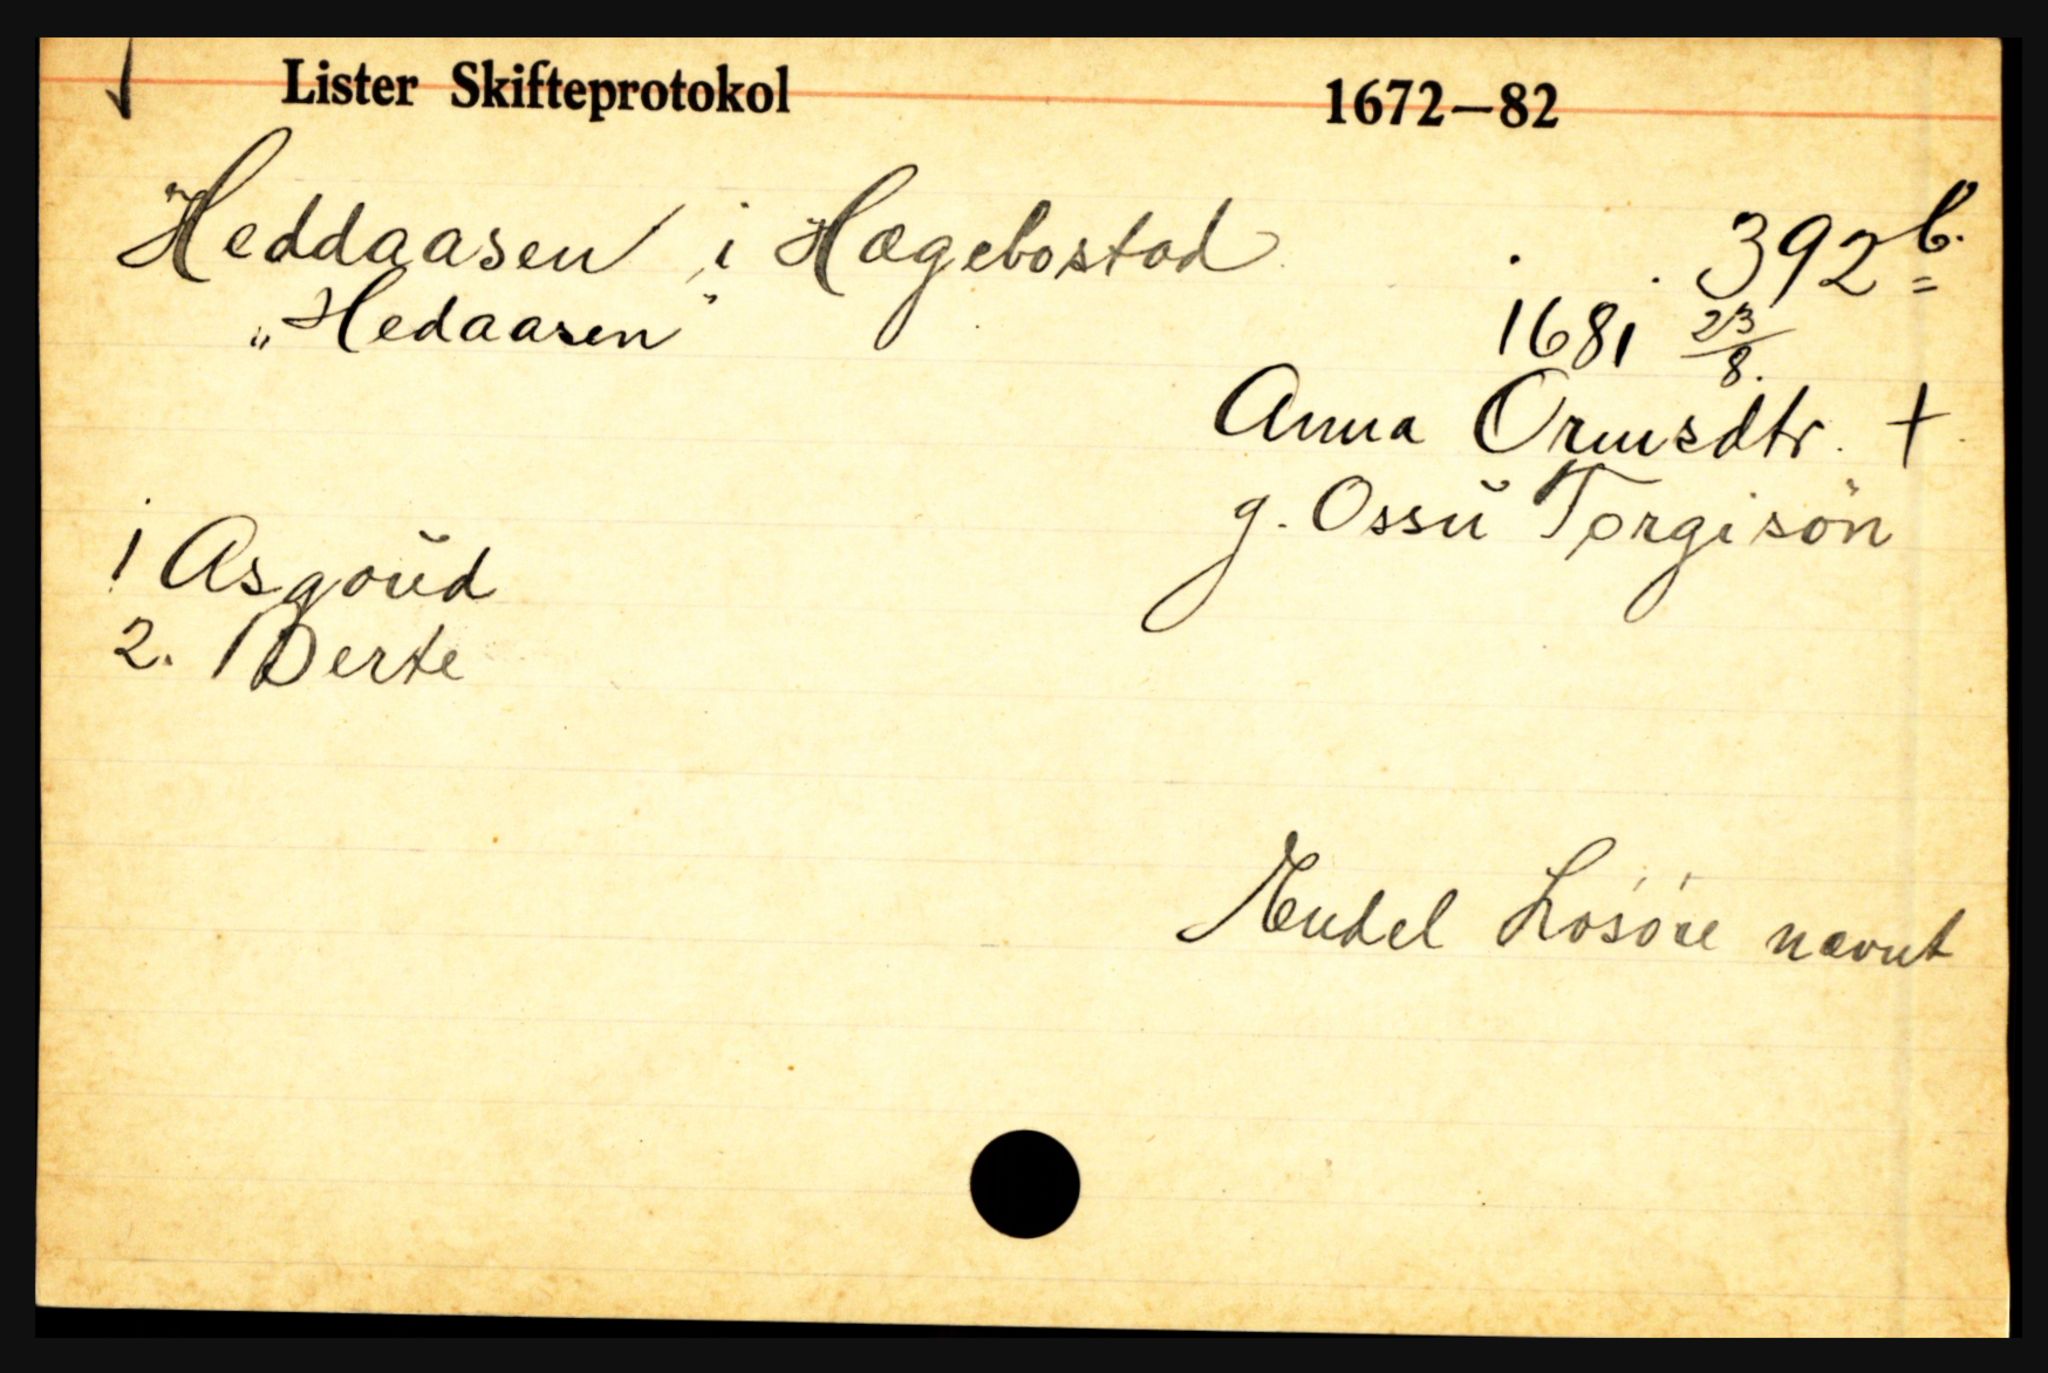 Lister Skifteprotokol 1672–82
Heddaasen i Hægebostad 392 b.
„Hedaasen" 1681 23/8.
Anna Ormsdtr. +
g. Ossŭ Torgisön
1 Asgoŭd
2. Berte
Endel Losöre nævnt